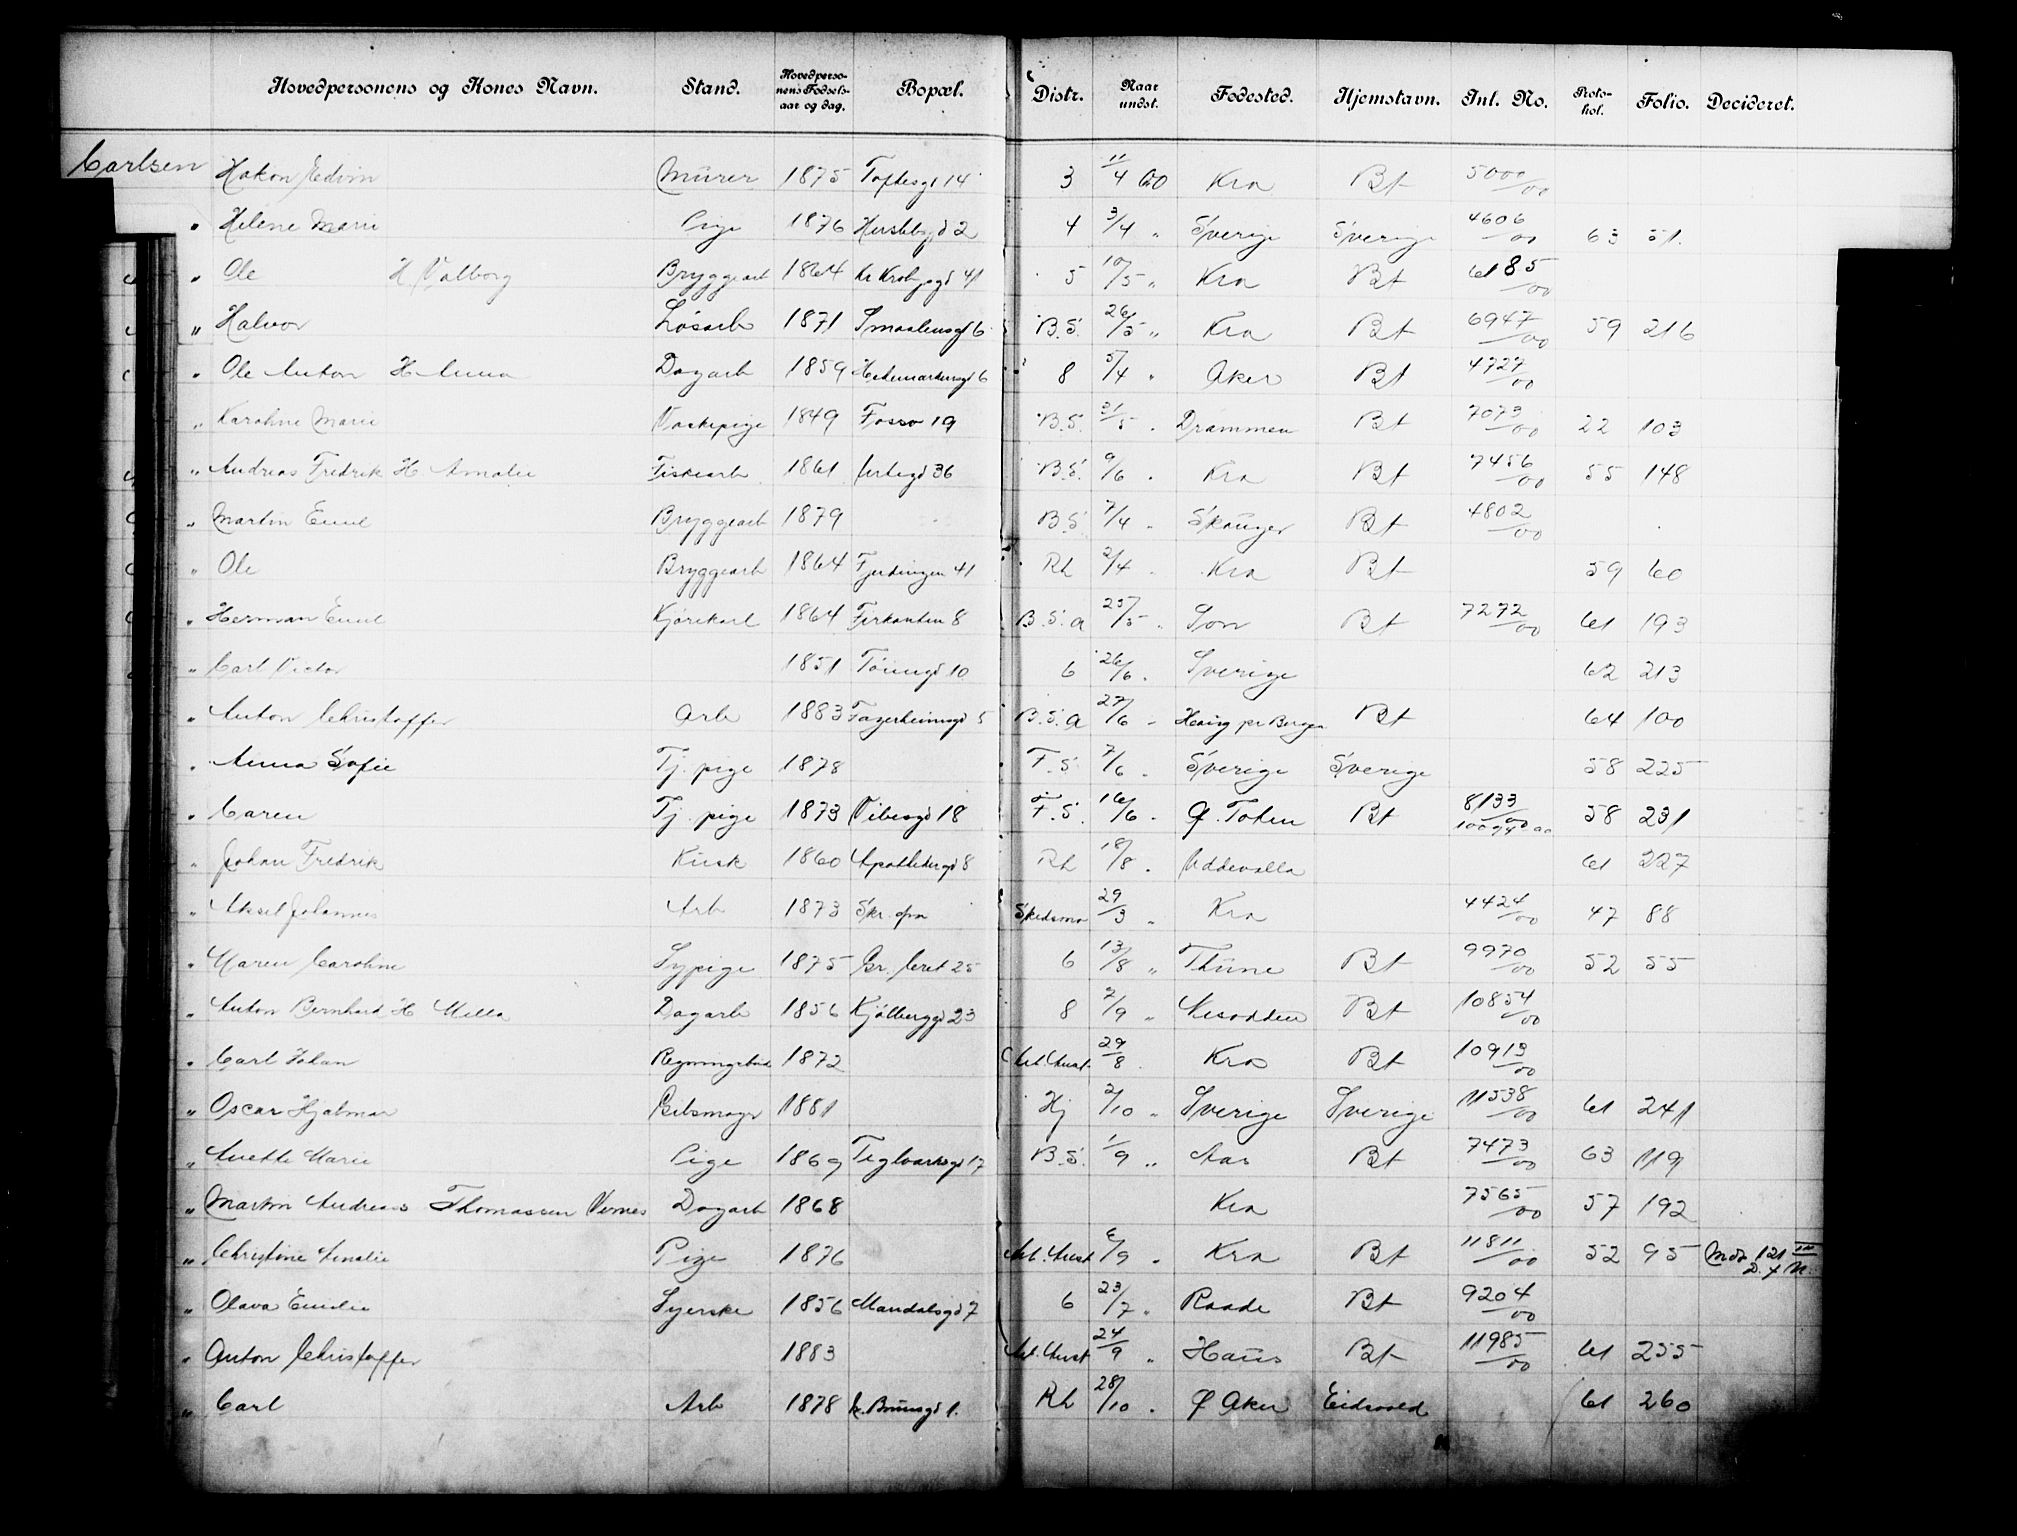 Hovedpersonens og Kones Navn. Stand. Hovedpersonens Fødselsaar og dag. Bopæl. Distr. Naar undst. Fødested. Hjemstavn. Inl. No. Protokol. Folio. Decideret.
Carlsen Hakon Edvin Murer 1875 Toftesgd 14 3 11/4 00 Kra Bt 5000/00
" Helene Marie Pige 1876 Herslebsgd 2 4 3/4 " Sverige Sverige 4606/00 63 51.
" Ole H Valborg Bryggearb 1864 41 5 10/5 " Kra Bt 6185/00
" Halvor Løsarb 1871 Smaalensgd 6 B.S. 26/5 " Kra Bt 6947/00 59 216
" Ole Anton H Anna Dagarb 1859 Hedemarkensgd 6 8 5/4 " Aker Bt 4727/00
" Karoline Marie Vaskepige 1849 Fossv 19 B.S. 31/5 " Drammen Bt 7073/00 22 103
" Andreas Fredrik H Amalie Fiskearb 1861 36 B.S. 9/6 " Kra Bt 7456/00 55 148
" Martin Emil Bryggearb 1879 B.S. 7/4 " Skauger Bt 4802/00
" Ole Bryggearb 1864 Fjerdingen 41 Rh 2/4 Kra Bt 59 60
" Herman Emil Kjørekarl 1864 Firkanten 8 B.S.a 25/5 " Son Bt 7272/00 61 193
" Carl Victor 1851 Tøiengd 10 6 26/6 " Sverige 62 213
" Anton Christoffer Arb 1883 Fagerheimsgd 5 B.S.a 27/6 " Haug pr Bergen Bt 64 100
" Anna Sofie Tj. pige 1878 F.S. 7/6 " Sverige Sverige 58 225
" Caren Tj. pige 1873 Vibesgd 18 F.S. 16/6 " Ø. Toten Bt 8133/00 58 231
" Johan Fredrik Kusk 1860 Apothekergd 8 Rh 18/8 " Uddevalla 61 227
" Aksel Johannes Arb 1873 Skedsmo 29/3 " Kra 4424/00 47 88
" Maren Caroline Sypige 1875 25 6 13/8 " Thune Bt 9970/00 52 55
" Anton Bernhard H Milla Dagarb 1856 Kjølberggd 23 8 7/9 " Nesodden Bt 10854/00
" Carl Johan Regningsbud 1872 Arb. Anst 29/8 Kra Bt 10913/00
" Oscar Hjalmar 1881 Hj 2/10 " Sverige Sverige 11538/00 61 241
" Anette Marie Pige 1869 Teglverksgd 17 B.S. 1/9 " Aas Bt 7473/00 63 119
" Martin Andreas Thomassen Dagarb 1868 Kra 7565/00 57 192
" Christine Amalie Pige 1876 Arb. Anst 6/9 " Kra Bt 11811/00 52 95
" Olava Emilie Syerske 1856 Mandalsgd 7 6 23/7 " Raade Bt 9204/00
" Anton Christoffer 1883 Arb. Anst 24/9 " Haus Bt 11985/00 61 255
" Carl Arb 1878 Brunsgd 1. Rh 28/10 " Ø Aker Eidsvold 61 260